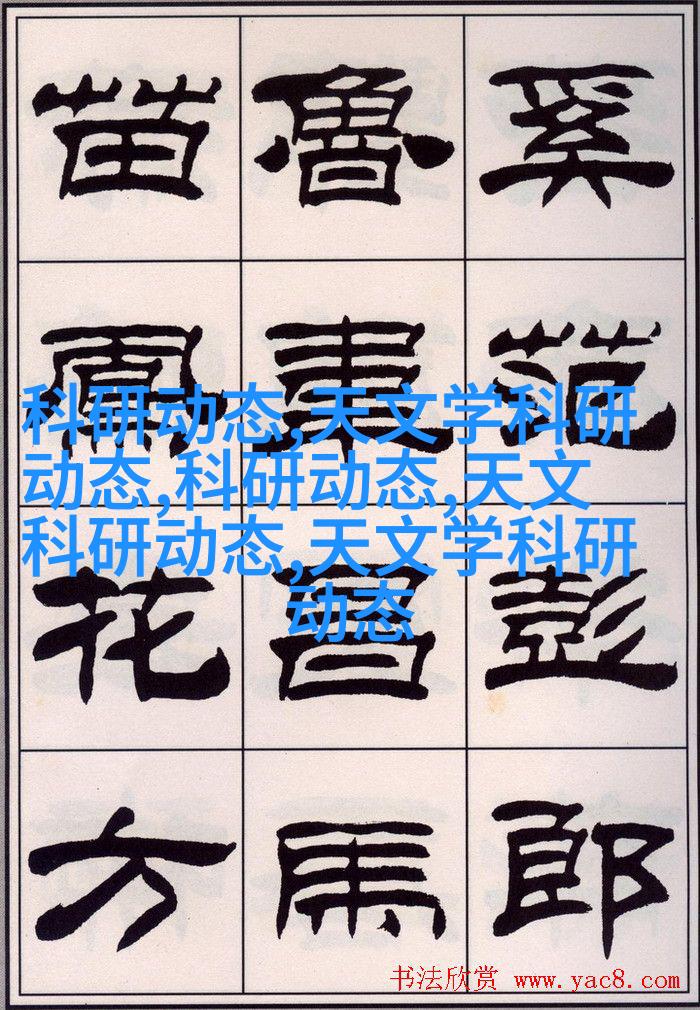 奚范彭郎
魯韋昌馬
苗鳳花方
科研动态,天文学科研
动态,科研动态,天文
科研动态,天文学科研
动态
书法欣赏 www.yac8.com